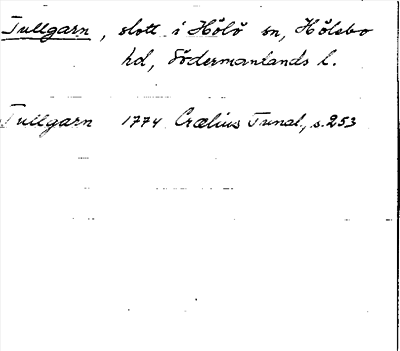 Tullgarn, slott i Hölö sn, Hölebo
hd, Södermanlands l.
Tullgarn 1774 Crælius Tunal., s. 253